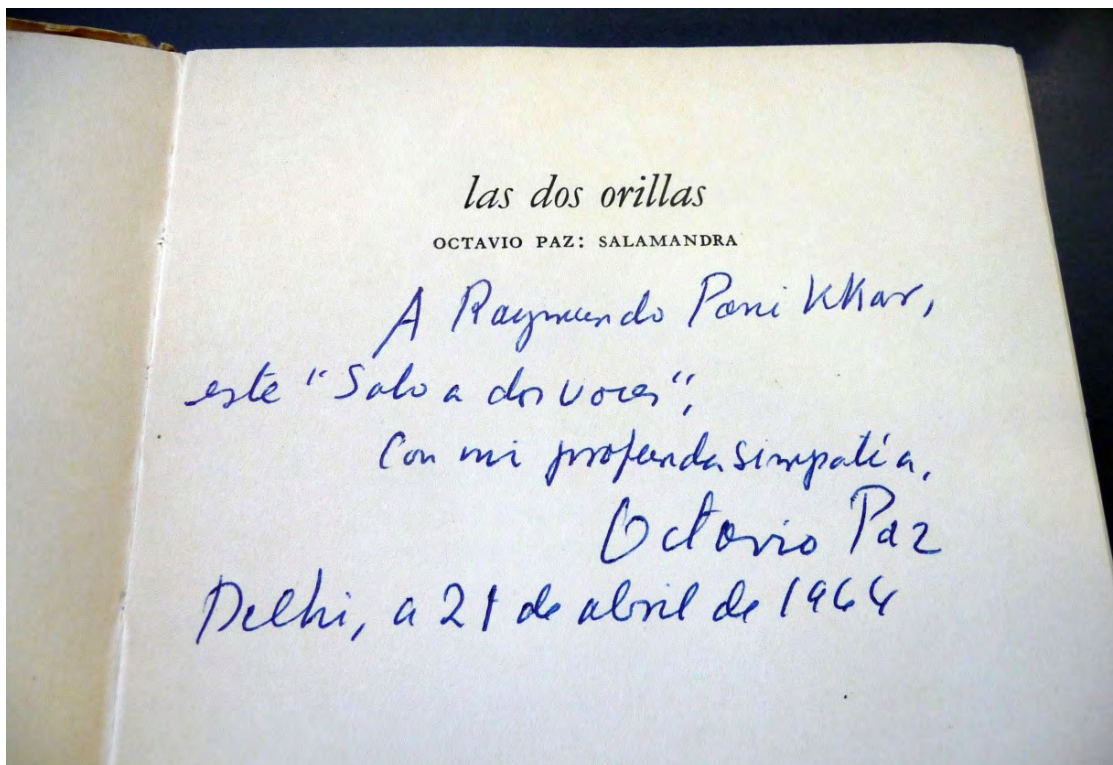 las dos orillas
OCTAVIO PAZ: SALAMANDRA
A Raymundo Panikkar,
este "Solo a dos voces",
Con mi profunda simpatía,
Octavio Paz
Delhi, a 21 de abril de 1964